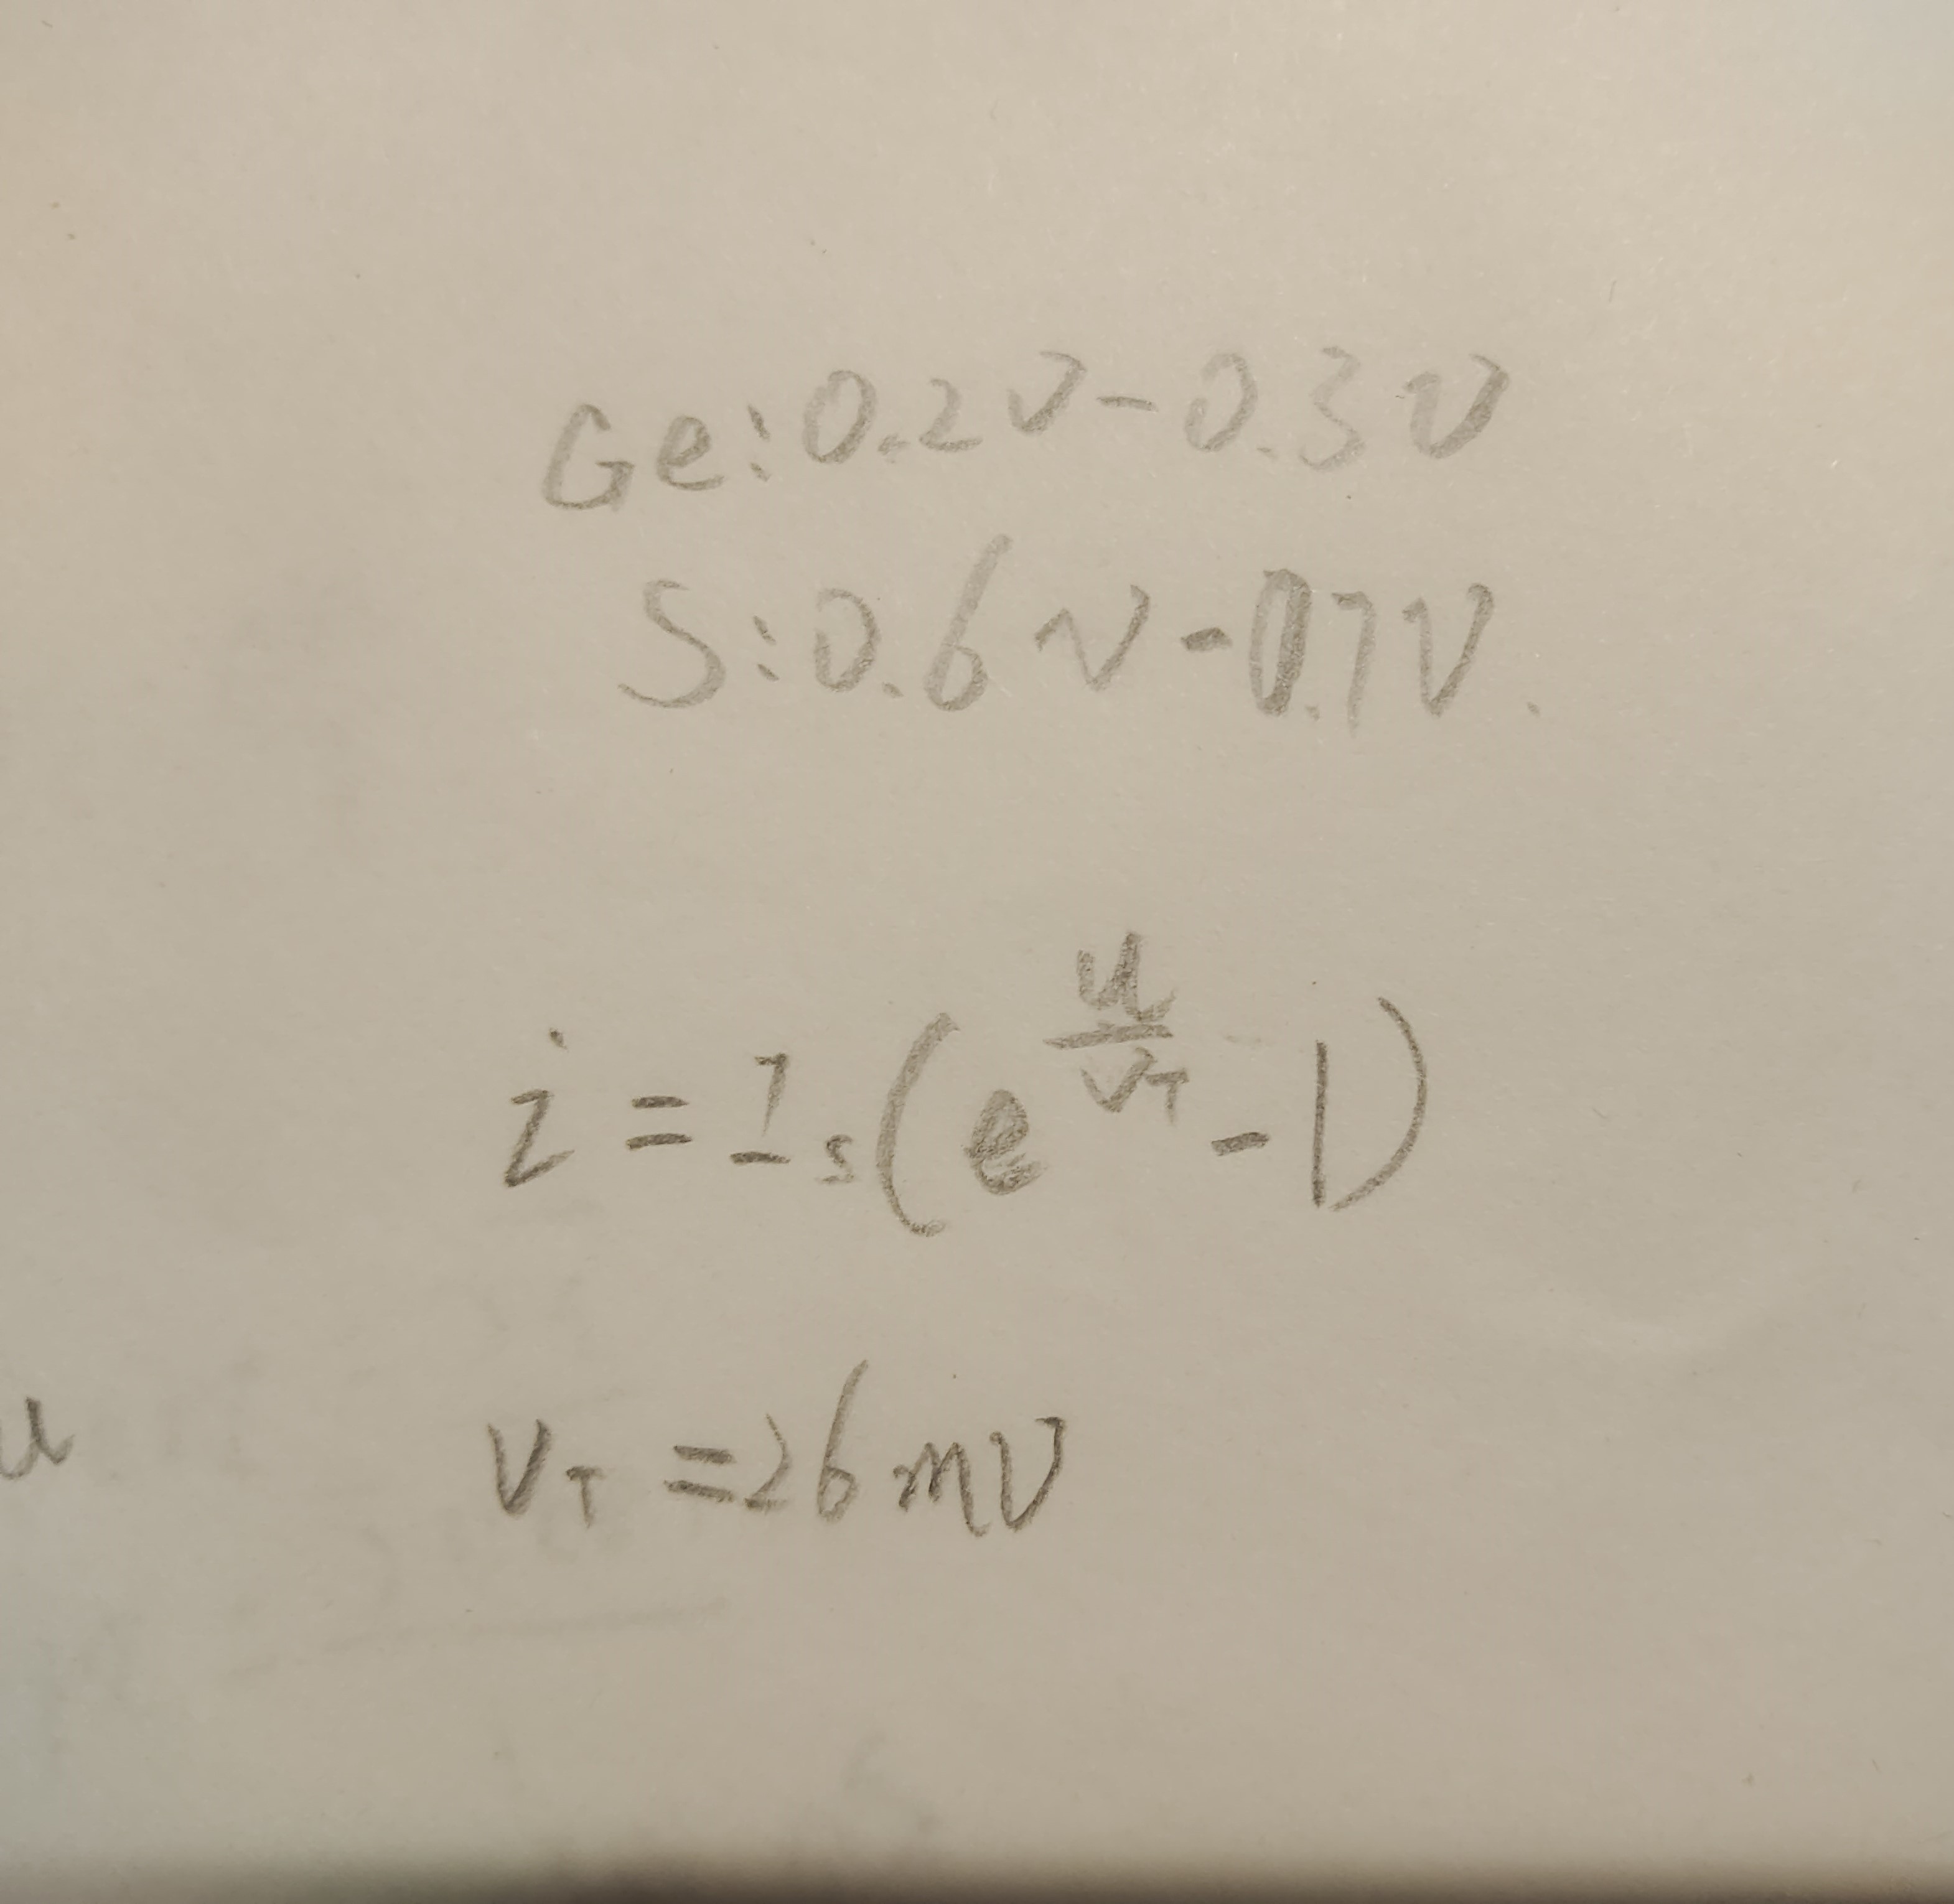 Ge: 0.2V-0.3V
S: 0.6V-0.7V.
i = Is(e^(u/VT) - 1)
u
VT = 26mV